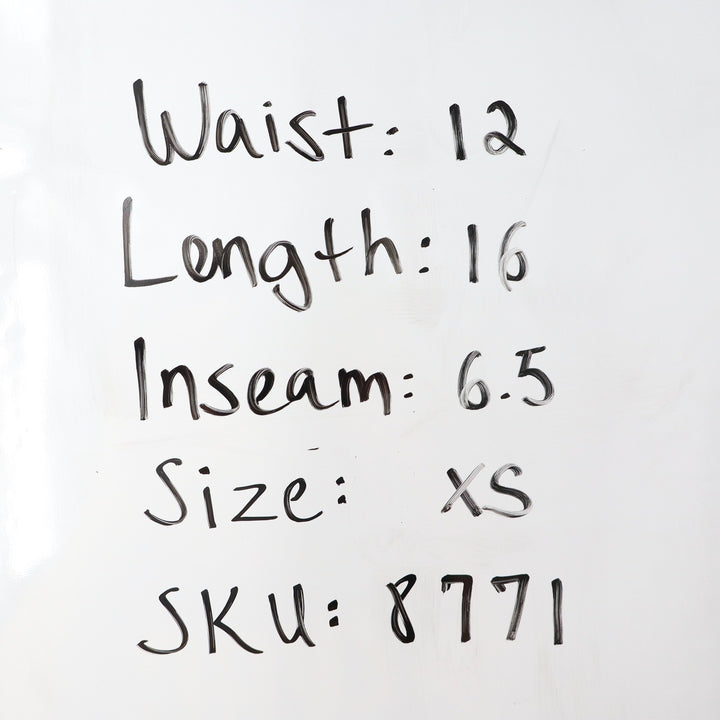 Waist: 12
Length: 16
Inseam: 6.5
Size: XS
SKU: 8771